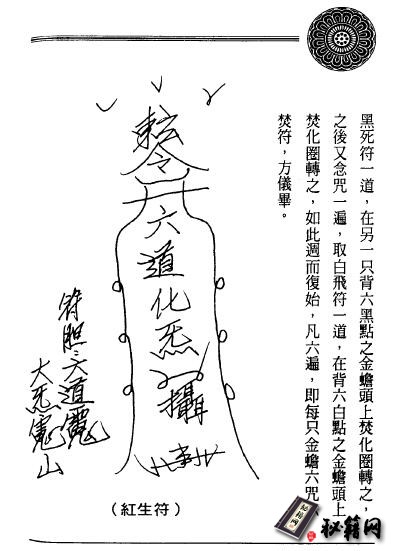 黑死符一道，在另一只背六黑點之金蟾頭上焚化圈轉之，
之後又念咒一遍，取白飛符一道，在背六白點之金蟾頭上
焚化圈轉之，如此週而復始，凡六遍，即每只金蟾六咒
焚符，方儀畢。
令
六
道
化
炁
攝
符胆：六道
大炁
山
（紅生符）
秘籍网
秘籍网